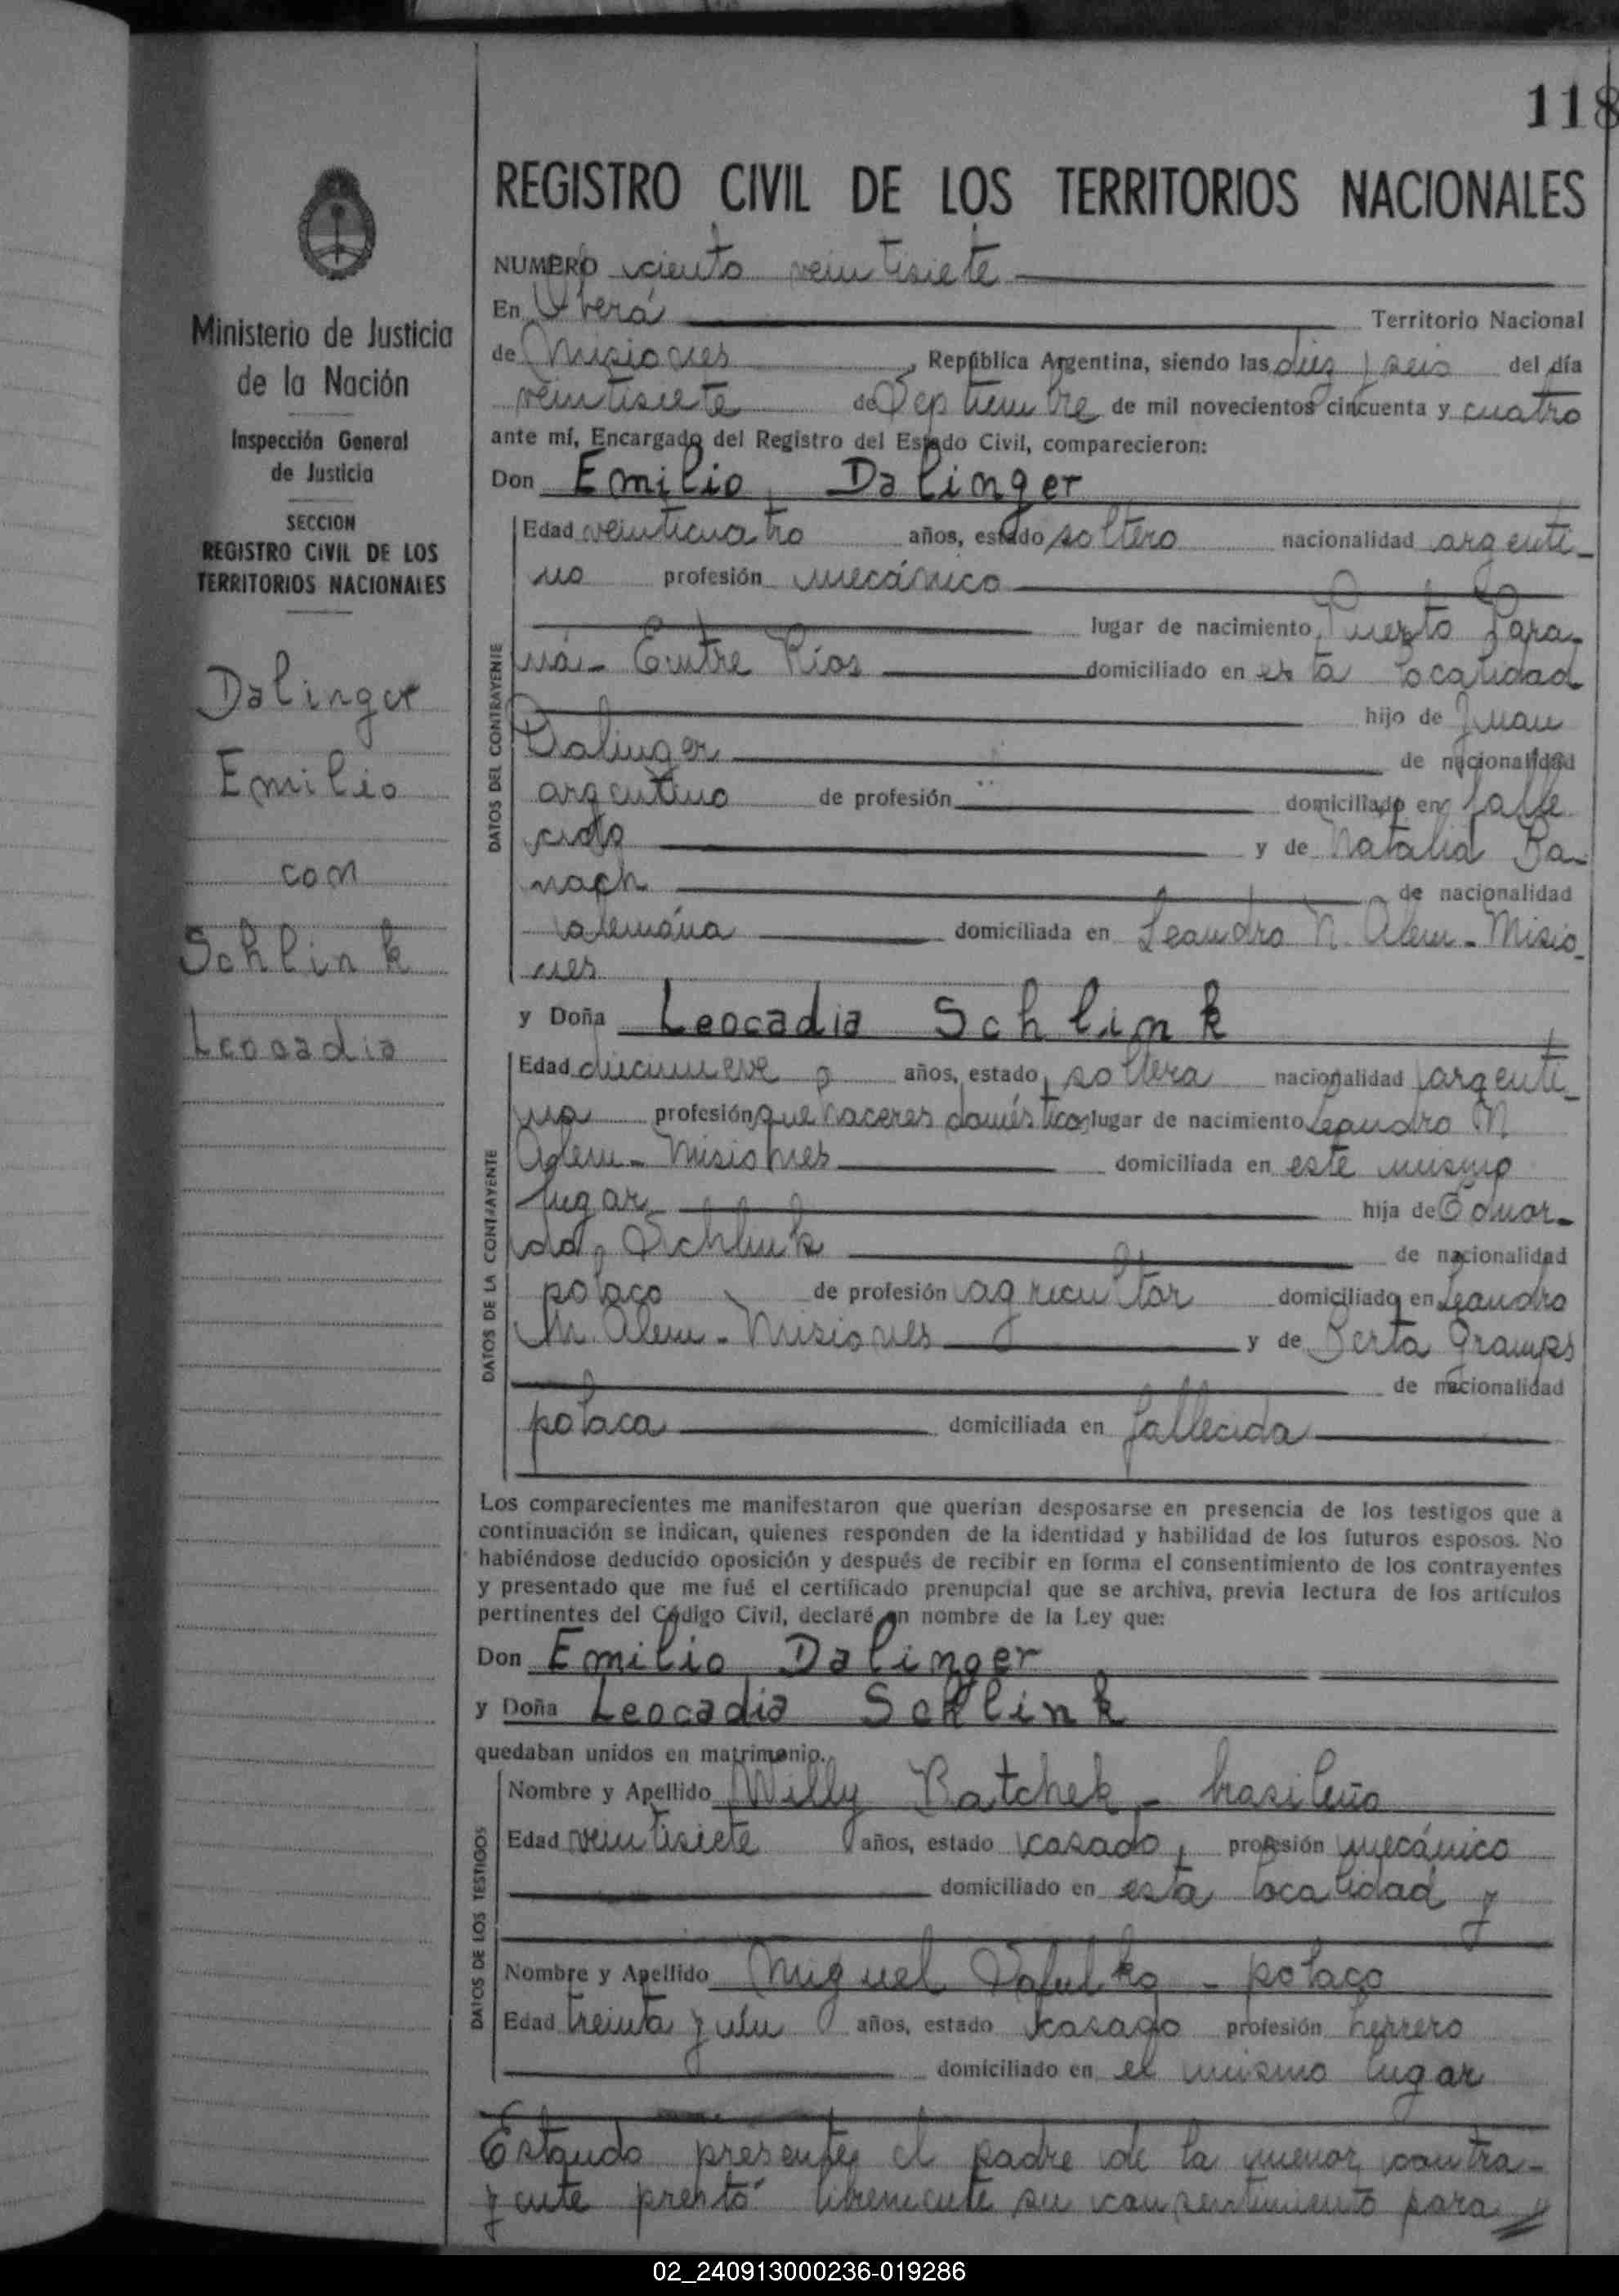 118
REGISTRO CIVIL DE LOS TERRITORIOS NACIONALES
Ministerio de Justicia
de la Nación
Inspección General
de Justicia
SECCION
REGISTRO CIVIL DE LOS
TERRITORIOS NACIONALES
Dalinger
Emilio
con
Schlink
Leocadia
NUMERO ciento veintisiete
En Oberá Territorio Nacional
de Misiones, República Argentina, siendo las diez y seis del día
veintisiete de Septiembre de mil novecientos cincuenta y cuatro
ante mí, Encargado del Registro del Estado Civil, comparecieron:
Don Emilio Dalinger
DATOS DEL CONTRAYENTE
Edad veinticuatro años, estado soltero nacionalidad argenti-
no profesión mecánico
lugar de nacimiento Puerto Para-
ná - Entre Ríos domiciliado en esta localidad
hijo de Juan
Dalinger de nacionalidad
argentino de profesión domiciliado en falle
cido y de Natalia
de nacionalidad
alemana domiciliada en Leandro N. Alem - Misio-
nes
y Doña Leocadia Schlink
DATOS DE LA CONTRAYENTE
Edad diecinueve años, estado soltera nacionalidad argenti-
na profesión quehaceres domésticos lugar de nacimiento Leandro N.
Alem - Misiones domiciliada en este mismo
lugar hija de Eduar-
do Schlink de nacionalidad
polaco de profesión agricultor domiciliado en Leandro
N. Alem - Misiones y de Berta
de nacionalidad
polaca domiciliada en fallecida
Los comparecientes me manifestaron que querían desposarse en presencia de los testigos que a
continuación se indican, quienes responden de la identidad y habilidad de los futuros esposos. No
habiéndose deducido oposición y después de recibir en forma el consentimiento de los contrayentes
y presentado que me fué el certificado prenupcial que se archiva, previa lectura de los artículos
pertinentes del Código Civil, declaré en nombre de la Ley que:
Don Emilio Dalinger
y Doña Leocadia Schlink
quedaban unidos en matrimonio.
DATOS DE LOS TESTIGOS
Nombre y Apellido Willy Batchek - brasileño
Edad veintisiete años, estado casado, profesión mecánico
domiciliado en esta localidad y
Nombre y Apellido Miguel - polaco
Edad treinta y un años, estado casado profesión herrero
domiciliado en el mismo lugar
Estando presente el padre de la menor contra-
yente prestó libremente su consentimiento para
02_240913000236-019286